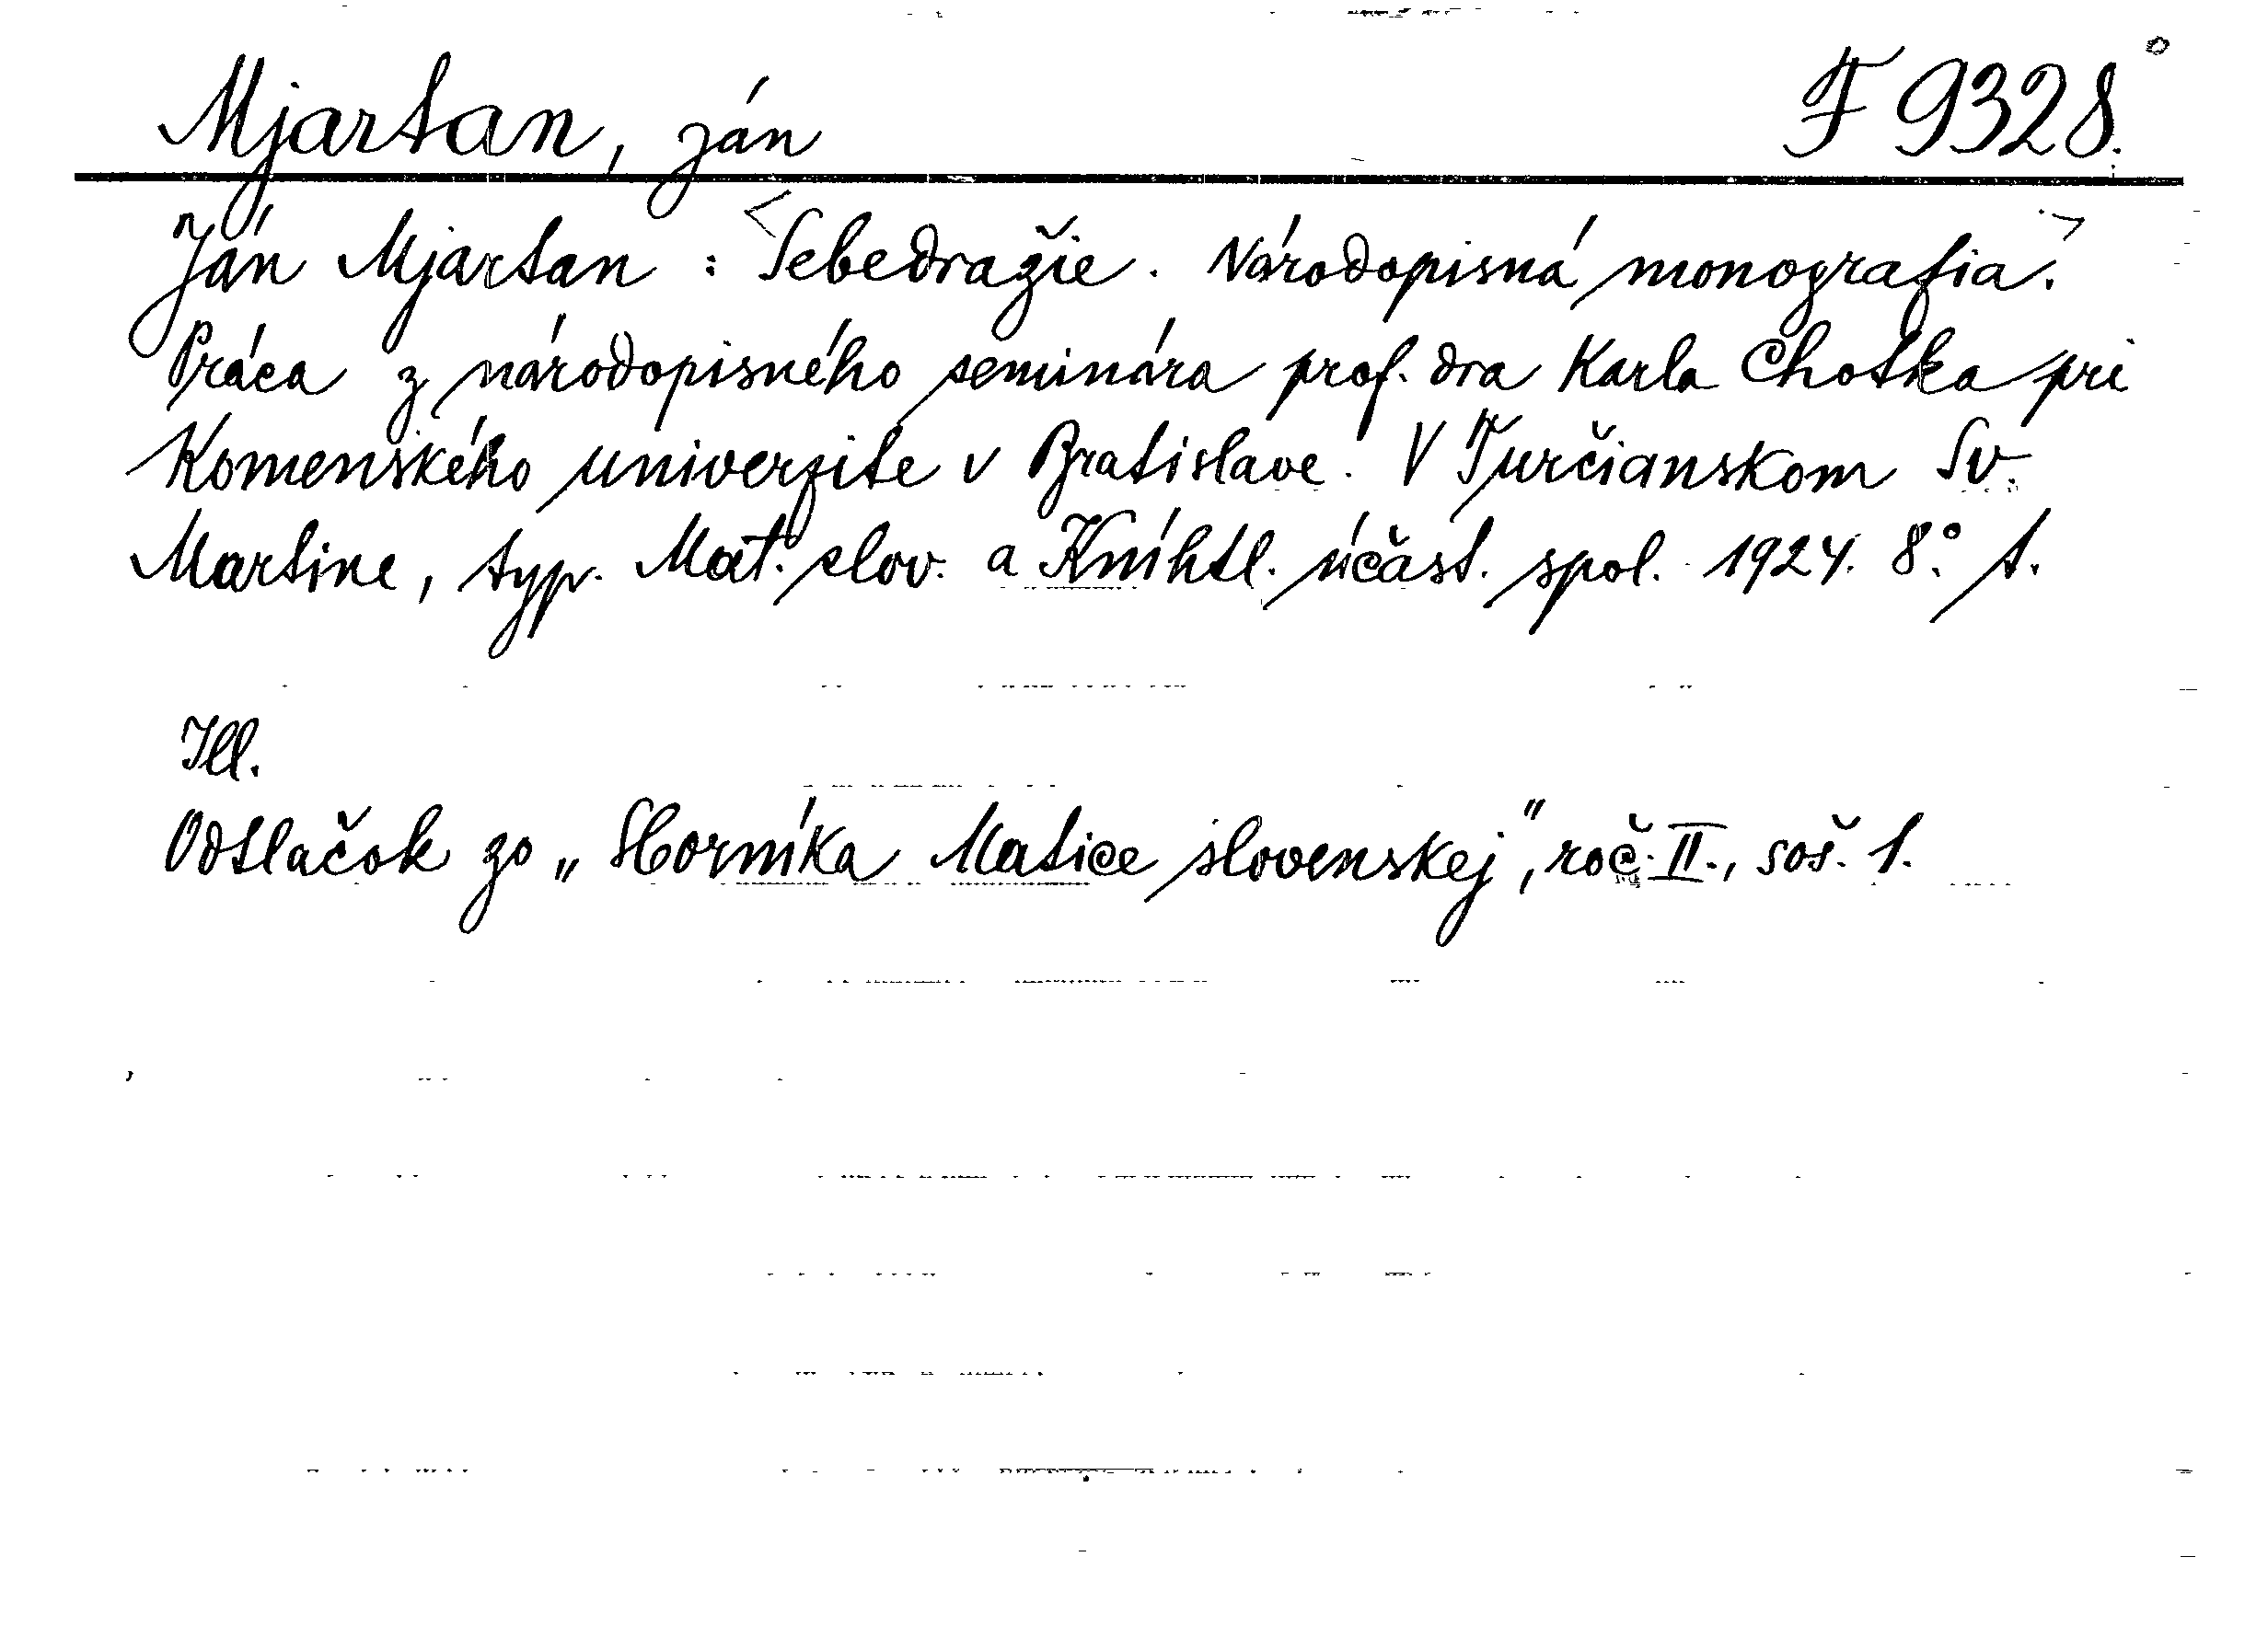 Mjartan, Ján F 9328.
Ján Mjartan : <Sebedražie. Národopisná monografia.>
Práca z národopisného seminára prof. dra Karla Chotka pri
Komenského univerzite v Bratislave. V Turčianskom Sv.
Martine, typ. Mat. slov. a Kníhtl. účast. spol. 1924. 8°. 1.
Ill.
Odtlačok zo „Sborníka Matice slovenskej", roč. II., soš. 1.